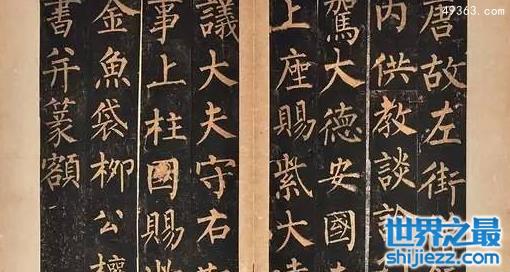 49363.com
唐故左街
内供教談論
駕大德安國
上座賜紫大達
議大夫守右
事上柱國賜
金魚袋柳公權
書并篆額
世界之最
shijiezz.com